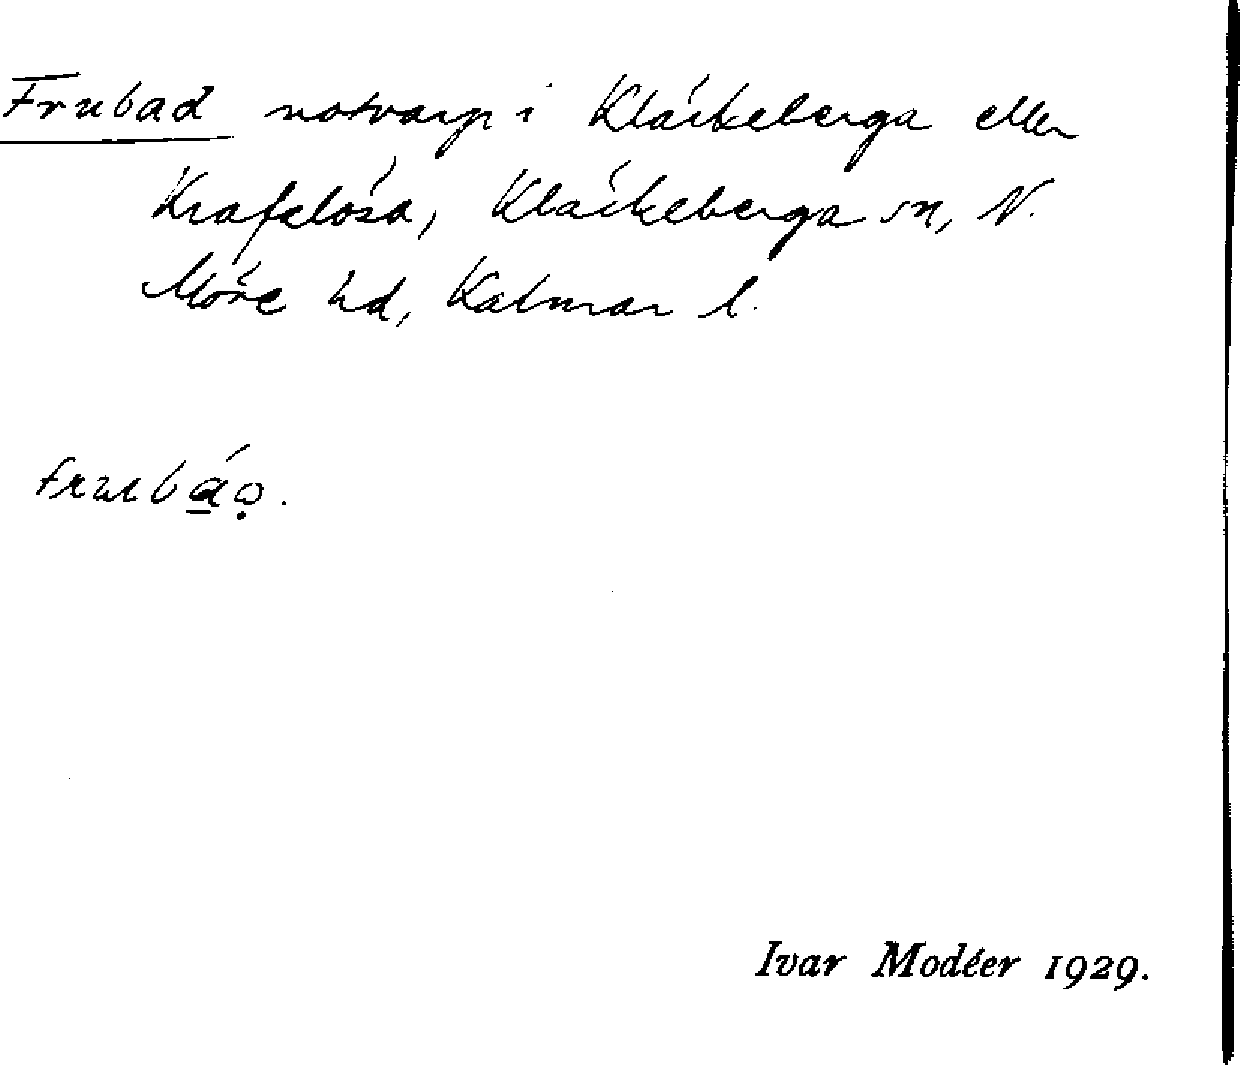 Frubad notvarp i Kläckeberga eller
Krafslösa, Kläckeberga sn, N.
Möre hd, Kalmar l.
Ivar Modéer 1929.